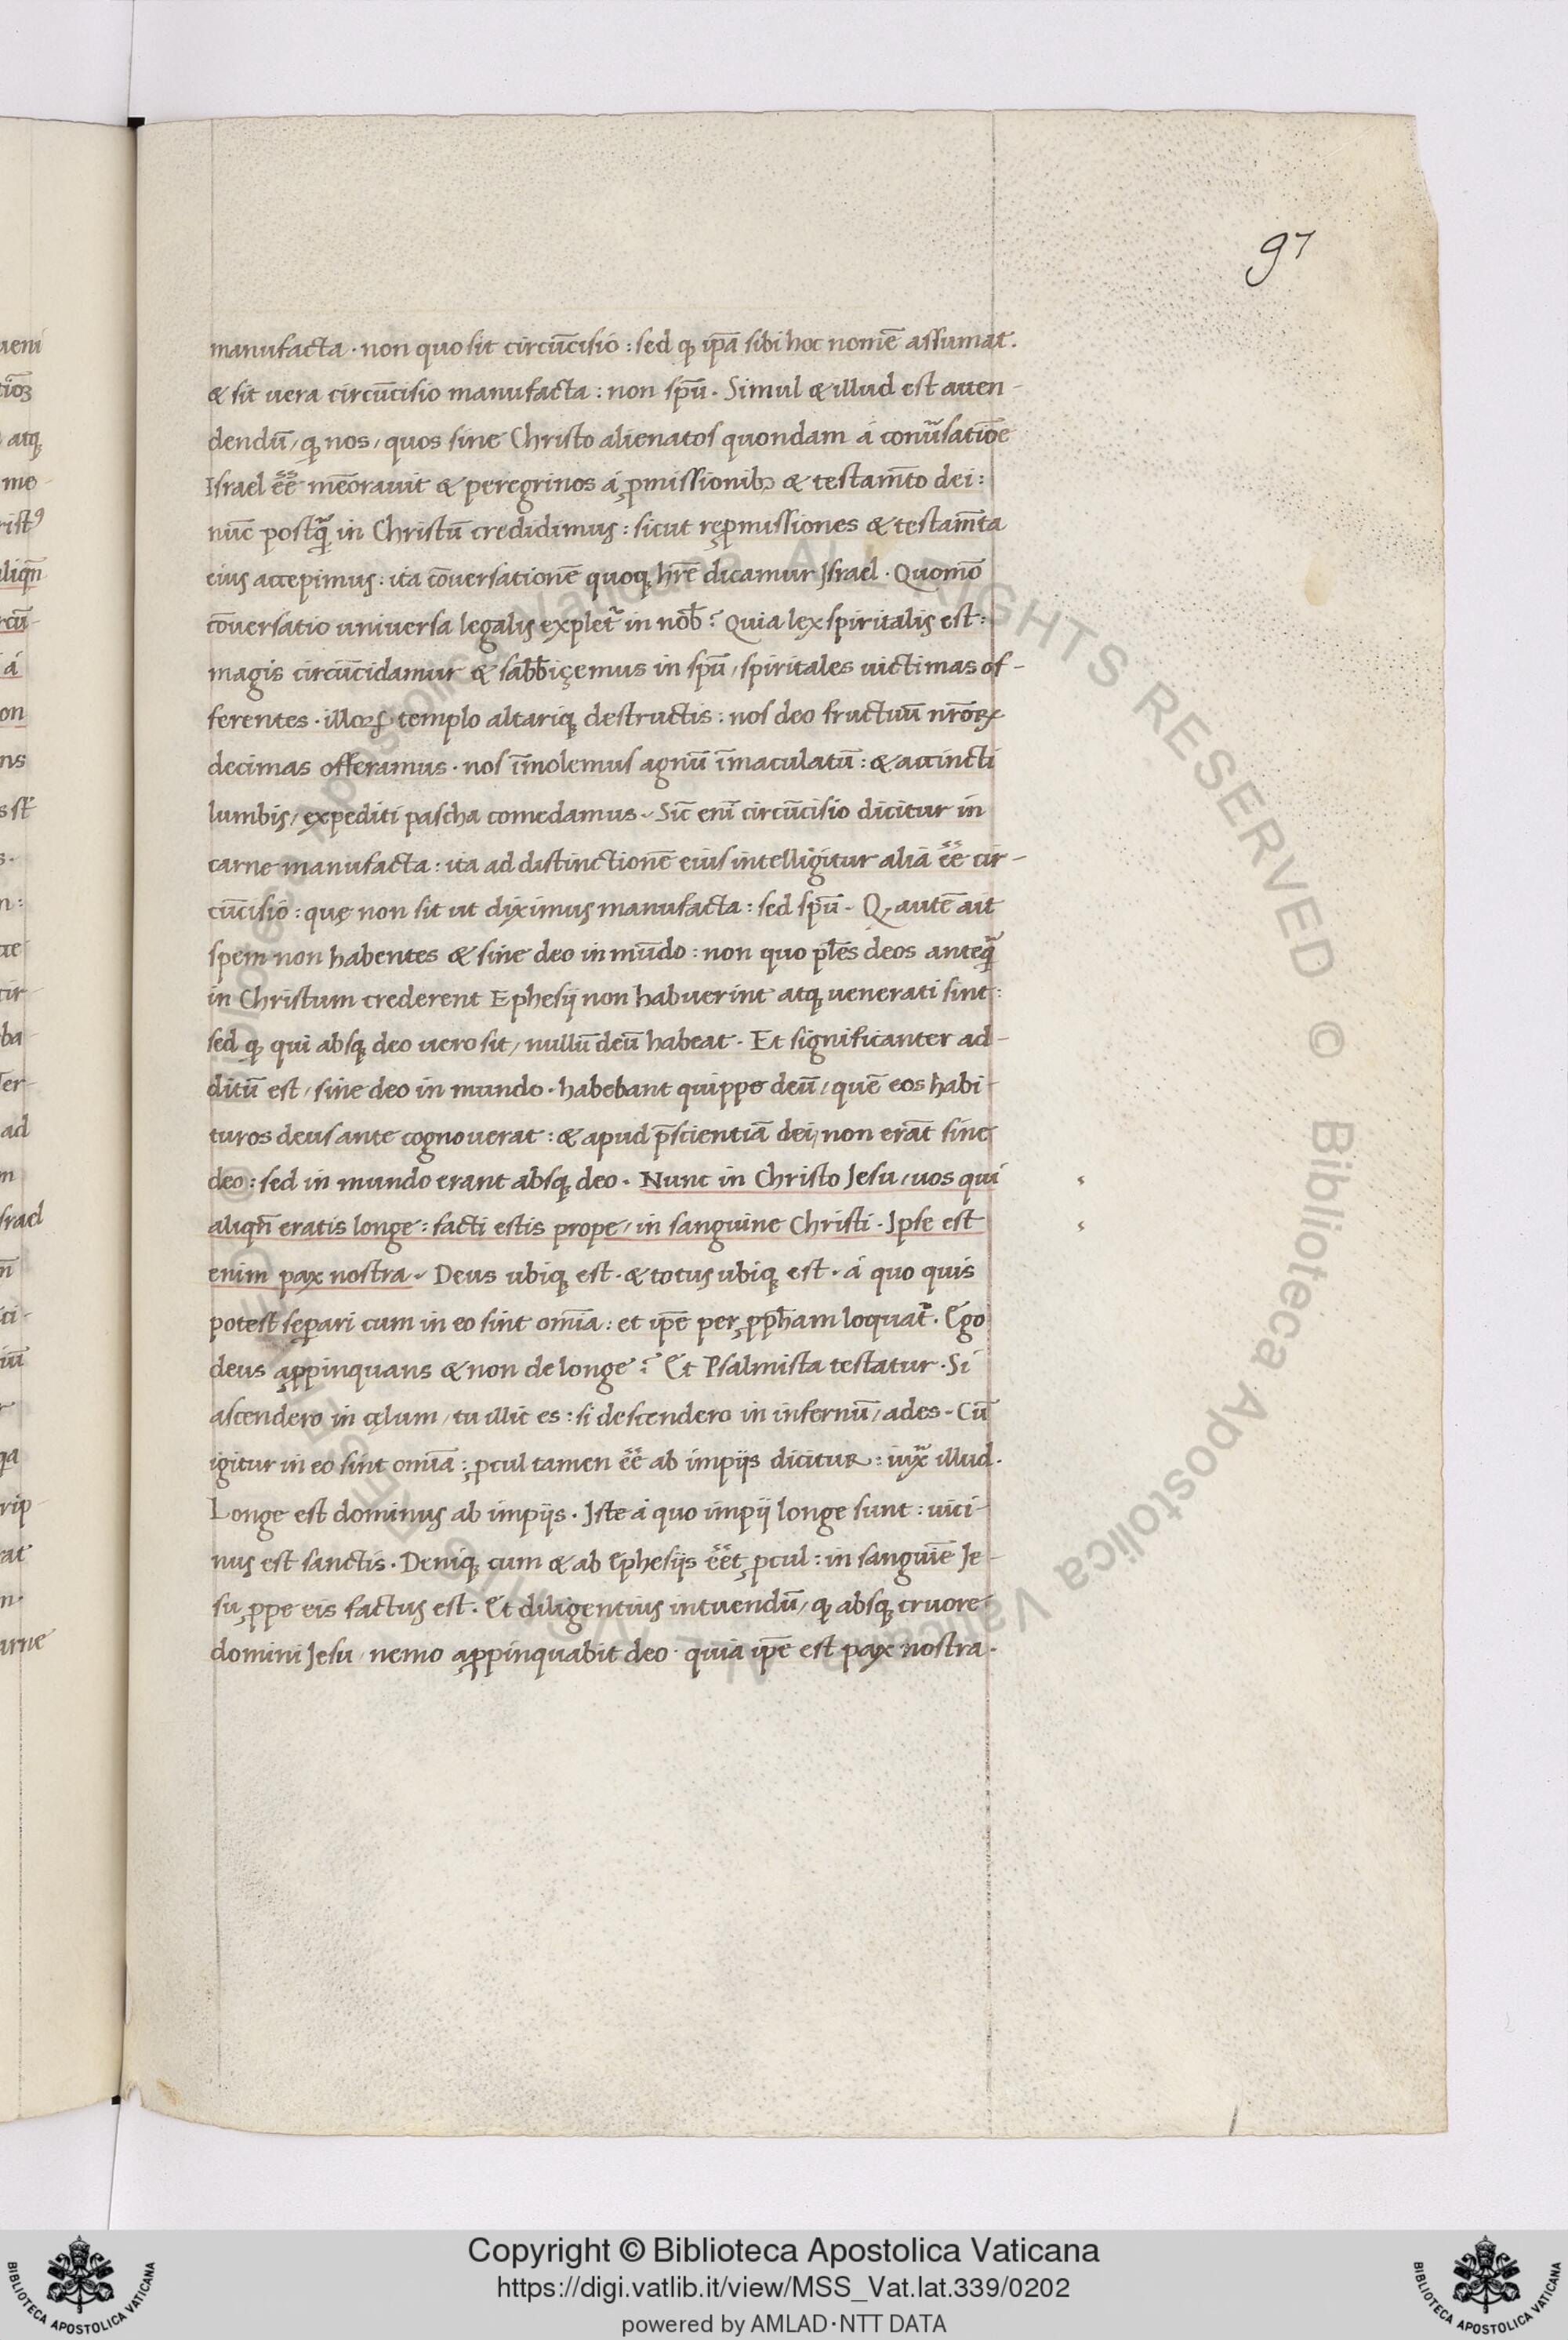 97
manufacta · non quo sit circūcisio : sed ꝙ ip̄a sibi hoc nomē assumat.
& sit uera circūcisio manufacta : non spū · Simul & illud est atten-
dendū / ꝙ nos / quos sine Christo alienatos quondam á conūsatiōe
Israel ēē mēorauit & peregrinos á ꝓmissionibꝫ & testam̄to dei :
nūc postꝗ̃ in Christū credidimus : sicut reꝓmissiones & testam̄ta
eius accepimus : ita cōuersationē quoqꝫ hr̄e dicamur Israel · Quomō
cōuersatio uniuersa legalis explet᷑ in nob̄ ? Quia lex spiritalis est :
magis circūcidamur & sab̄b̄içemus in spū / spiritales uictimas of-
ferentes · illoꝝ templo altariqꝫ destructis : nos deo fructuū nr̄oꝝ
decimas offeramus · nos īmolemus agnū īmaculatū : & accincti
lumbis / expediti pascha comedamus · Sic̄ enī circūcisio dicitur in
carne manufacta : ita ad distinctionē eius intelligitur aliā ēē cir-
cūcisio : quę non sit ut diximus manufacta : sed spū · Qꝫ autē ait
spem non habentes & sine deo in mūdo : non quo pl̄es deos anteꝗ̃
in Christum crederent Ephesij non habuerint atqꝫ uenerati sint :
sed ꝙ qui absqꝫ deo uero sit / nullū deū habeat · Et significanter ad-
ditū est / sine deo in mundo · habebant quippe deū / quē eos habi-
turos deus ante cognouerat : & apud p̄scientiā dei / non erāt sine
deo : sed in mundo erant absqꝫ deo · Nunc in Christo Jesu / uos qui
aliqn̄ eratis longe : facti estis prope / in sanguine Christi · Ipse est
enim pax nostra · Deus ubiqꝫ est · & totus ubiqꝫ est · á quo quis
potest seꝑari cum in eo sint omīa : et ip̄e per ꝓph̄am loquat᷑ · Ego
deus aꝓpinquans & non de longe ? Et Psalmista testatur · Si
ascendero in cęlum / tu illic es : si descendero in infernū / ades · Cū
igitur in eo sint omīa : ꝓcul tamen ēē ab impijs dicitur : iux̄ illud ·
Longe est dominus ab impijs · Iste á quo impij longe sunt : uici-
nus est sanctis · Deniqꝫ cum & ab Ephesijs ēēt ꝓcul : in sanguīe Je-
su ꝓpe eis factus est · Et diligentius intuendū / ꝙ absqꝫ cruore
domini Jesu / nemo aꝓpinquabit deo · quia ip̄e est pax nostra ·
ALL RIGHTS RESERVED © Biblioteca Apostolica Vaticana
Copyright © Biblioteca Apostolica Vaticana
https://digi.vatlib.it/view/MSS_Vat.lat.339/0202
powered by AMLAD·NTT DATA
BIBLIOTECA APOSTOLICA VATICANA
BIBLIOTECA APOSTOLICA VATICANA